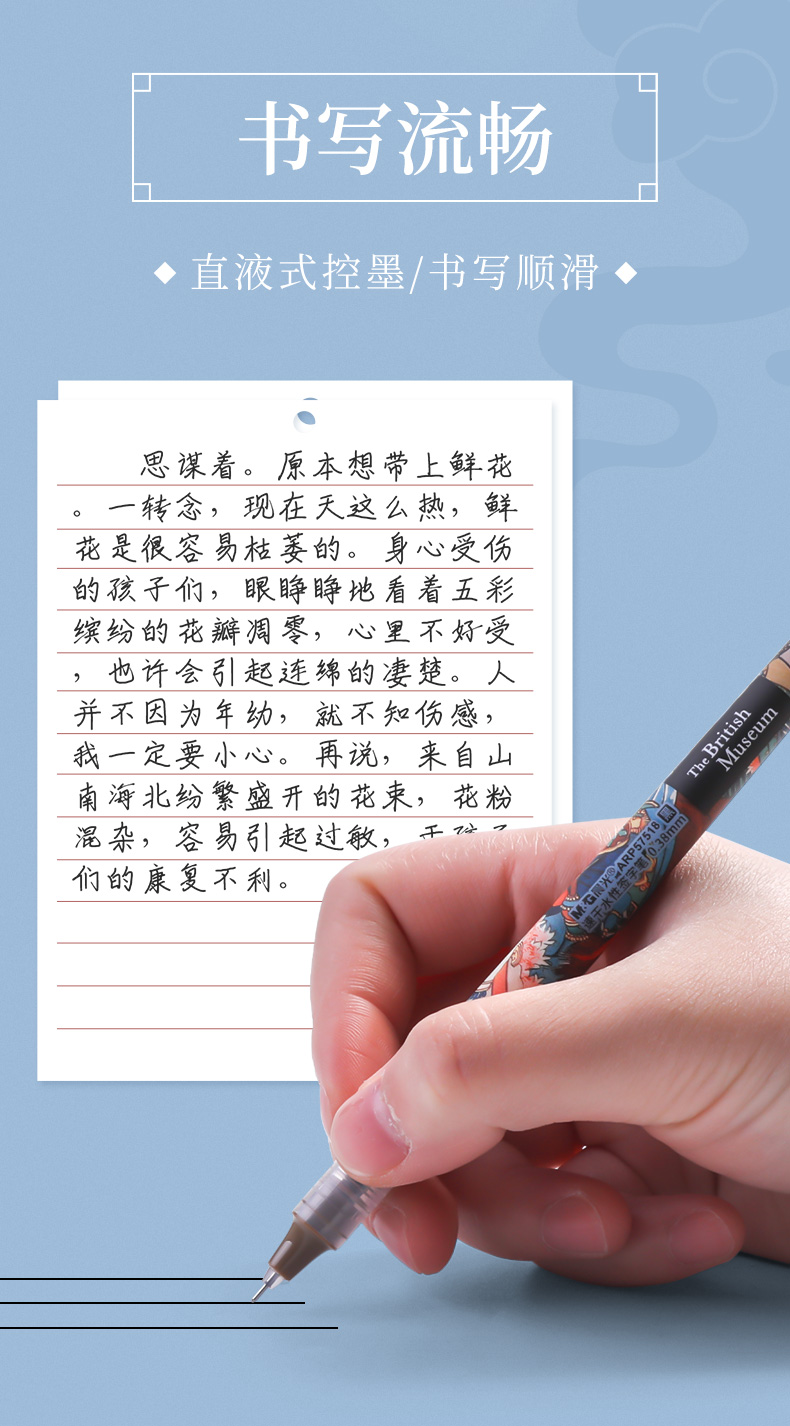 书写流畅
直液式控墨/书写顺滑
思谋着。原本想带上鲜花
。一转念，现在天这么热，鲜
花是很容易枯萎的。身心受伤
的孩子们，眼睁睁地看着五彩
缤纷的花瓣凋零，心里不好受
，也许会引起连绵的凄楚。人
并不因为年幼，就不知伤感，
我一定要小心。再说，来自山
南海北纷繁盛开的花束，花粉
混杂，容易引起过敏，于孩子
们的康复不利。
The British
Museum
M&G晨光®ARP57518
速干水性签字笔 0.38mm